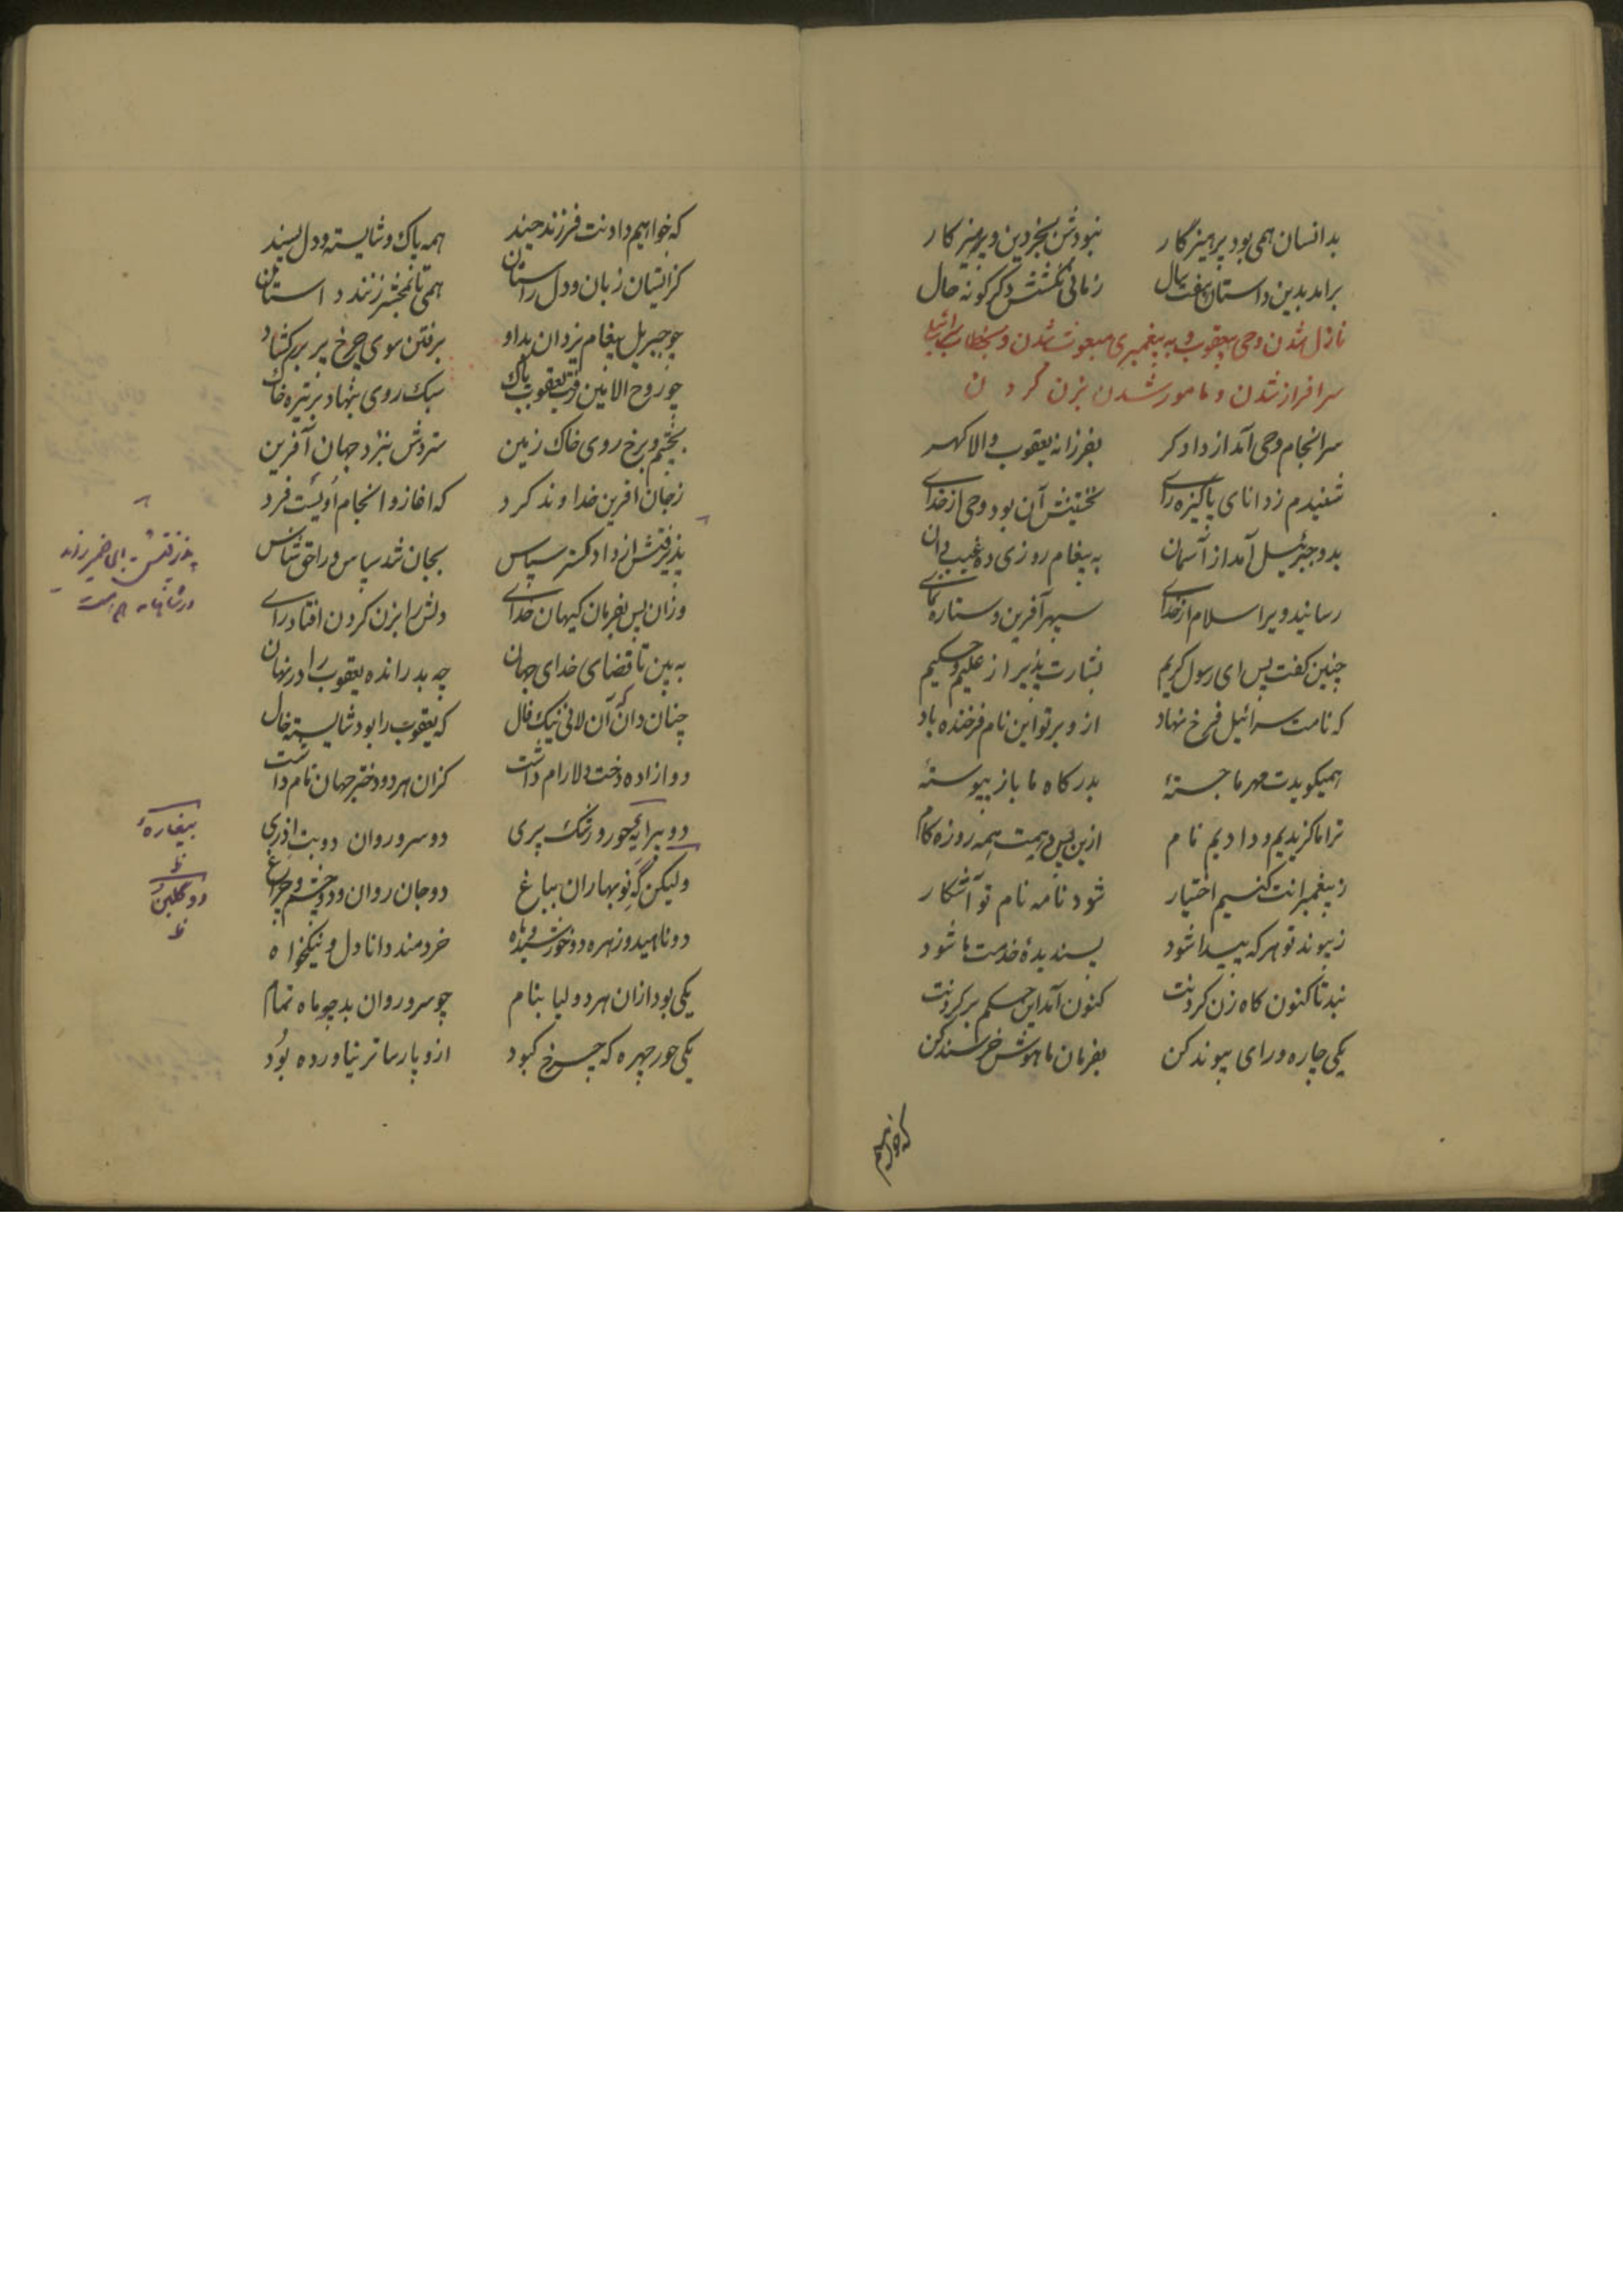 بدانسان همی بود پرهیزگار نبودش بجز دین و پرهیز کار
برامد بدین داستان هفت سال زمانی نگشتش دگر گونه حال
نازل شدن وحی بیعقوب و به پیغمبری مبعوث شدن و بخطاب اسرائیل
سرافراز شدن و مامور شدن بزن کردن
سرانجام وحی آمد از دادکر بفرزانه یعقوب والا کهر
شنیدم ز دانای پاکیزه رای نخستینش آن بود وحی از خدای
بدو جبرئیل آمد از آسمان به پیغام روزی ده غیب دان
رسانید ویرا سلام از خدای سپهر آفرین و ستاره نمای
چنین کفت پس ای رسول کریم بشارت پذیر از علیم و حکیم
که نامت سرائیل فرخ نهاد ازو بر تو این نام فرخنده باد
همیکویدت مهر ما جستهٔ بدرکاه ما باز پیوستهٔ
ترا ما کزیدیم و دادیم نام ازین پس دهیمت همه روزه کام
ز پیغمبرانت کنیم اختیار شود نامه نام تو آشکار
ز پیوند تو هر که پیدا شود پسندیدهٔ خدمت ما شود
نبد تا کنون کاه زن کردنت کنون آمد این حکم بر کردنت
یکی چاره و رای پیوند کن بفرمان ما هوش خرسند کن
که خواهیم
که خواهیم دادنت فرزند چند همه پاک و شایسته و دل پسند
کزایشان زبان و دل راستان همی تا بمحشر زنند داستان
چو جبریل پیغام یزدان بداد برفتن سوی چرخ پر برکشاد
چو روح الامین رفت یعقوب پاک سبک روی بنهاد بر تیره خاک
بچشم و برخ روی خاک زمین ستردش بنزد جهان آفرین
ز جان افرین خداوند کرد که اغاز و انجام اویست فرد
پذیرفتش از دادکستر سپاس بجان شد سپاس ورا حق شناس
وزان پس بفرمان کیهان خدای دلش را بزن کردن افتاد رای
به بین تا قضای خدای جهان چه بد رانده یعقوب را در نهان
چنان دان که آن لانی نیک فال که یعقوب را بود شایسته خال
دو ازاده دخت دلارام داشت کزان هر دو دختر جهان نام داشت
دو پیرایهٔ حور و رشک پری دو سرو روان دو بت اذری
ولیکن که نو بهاران بباغ دو جان روان و دو چشم و چراغ
دو ناهید و زهره دو خورشید و ماه خردمند و دانا دل و نیکخواه
یکی بود ازان هر دو لیا بنام چو سرو روان بد چو ماه تمام
یکی حور چهره که چرخ کبود ازو پارساتر نیاورده بود
پذرفتش
بیغاره
ظ
دو گلبن
ظ